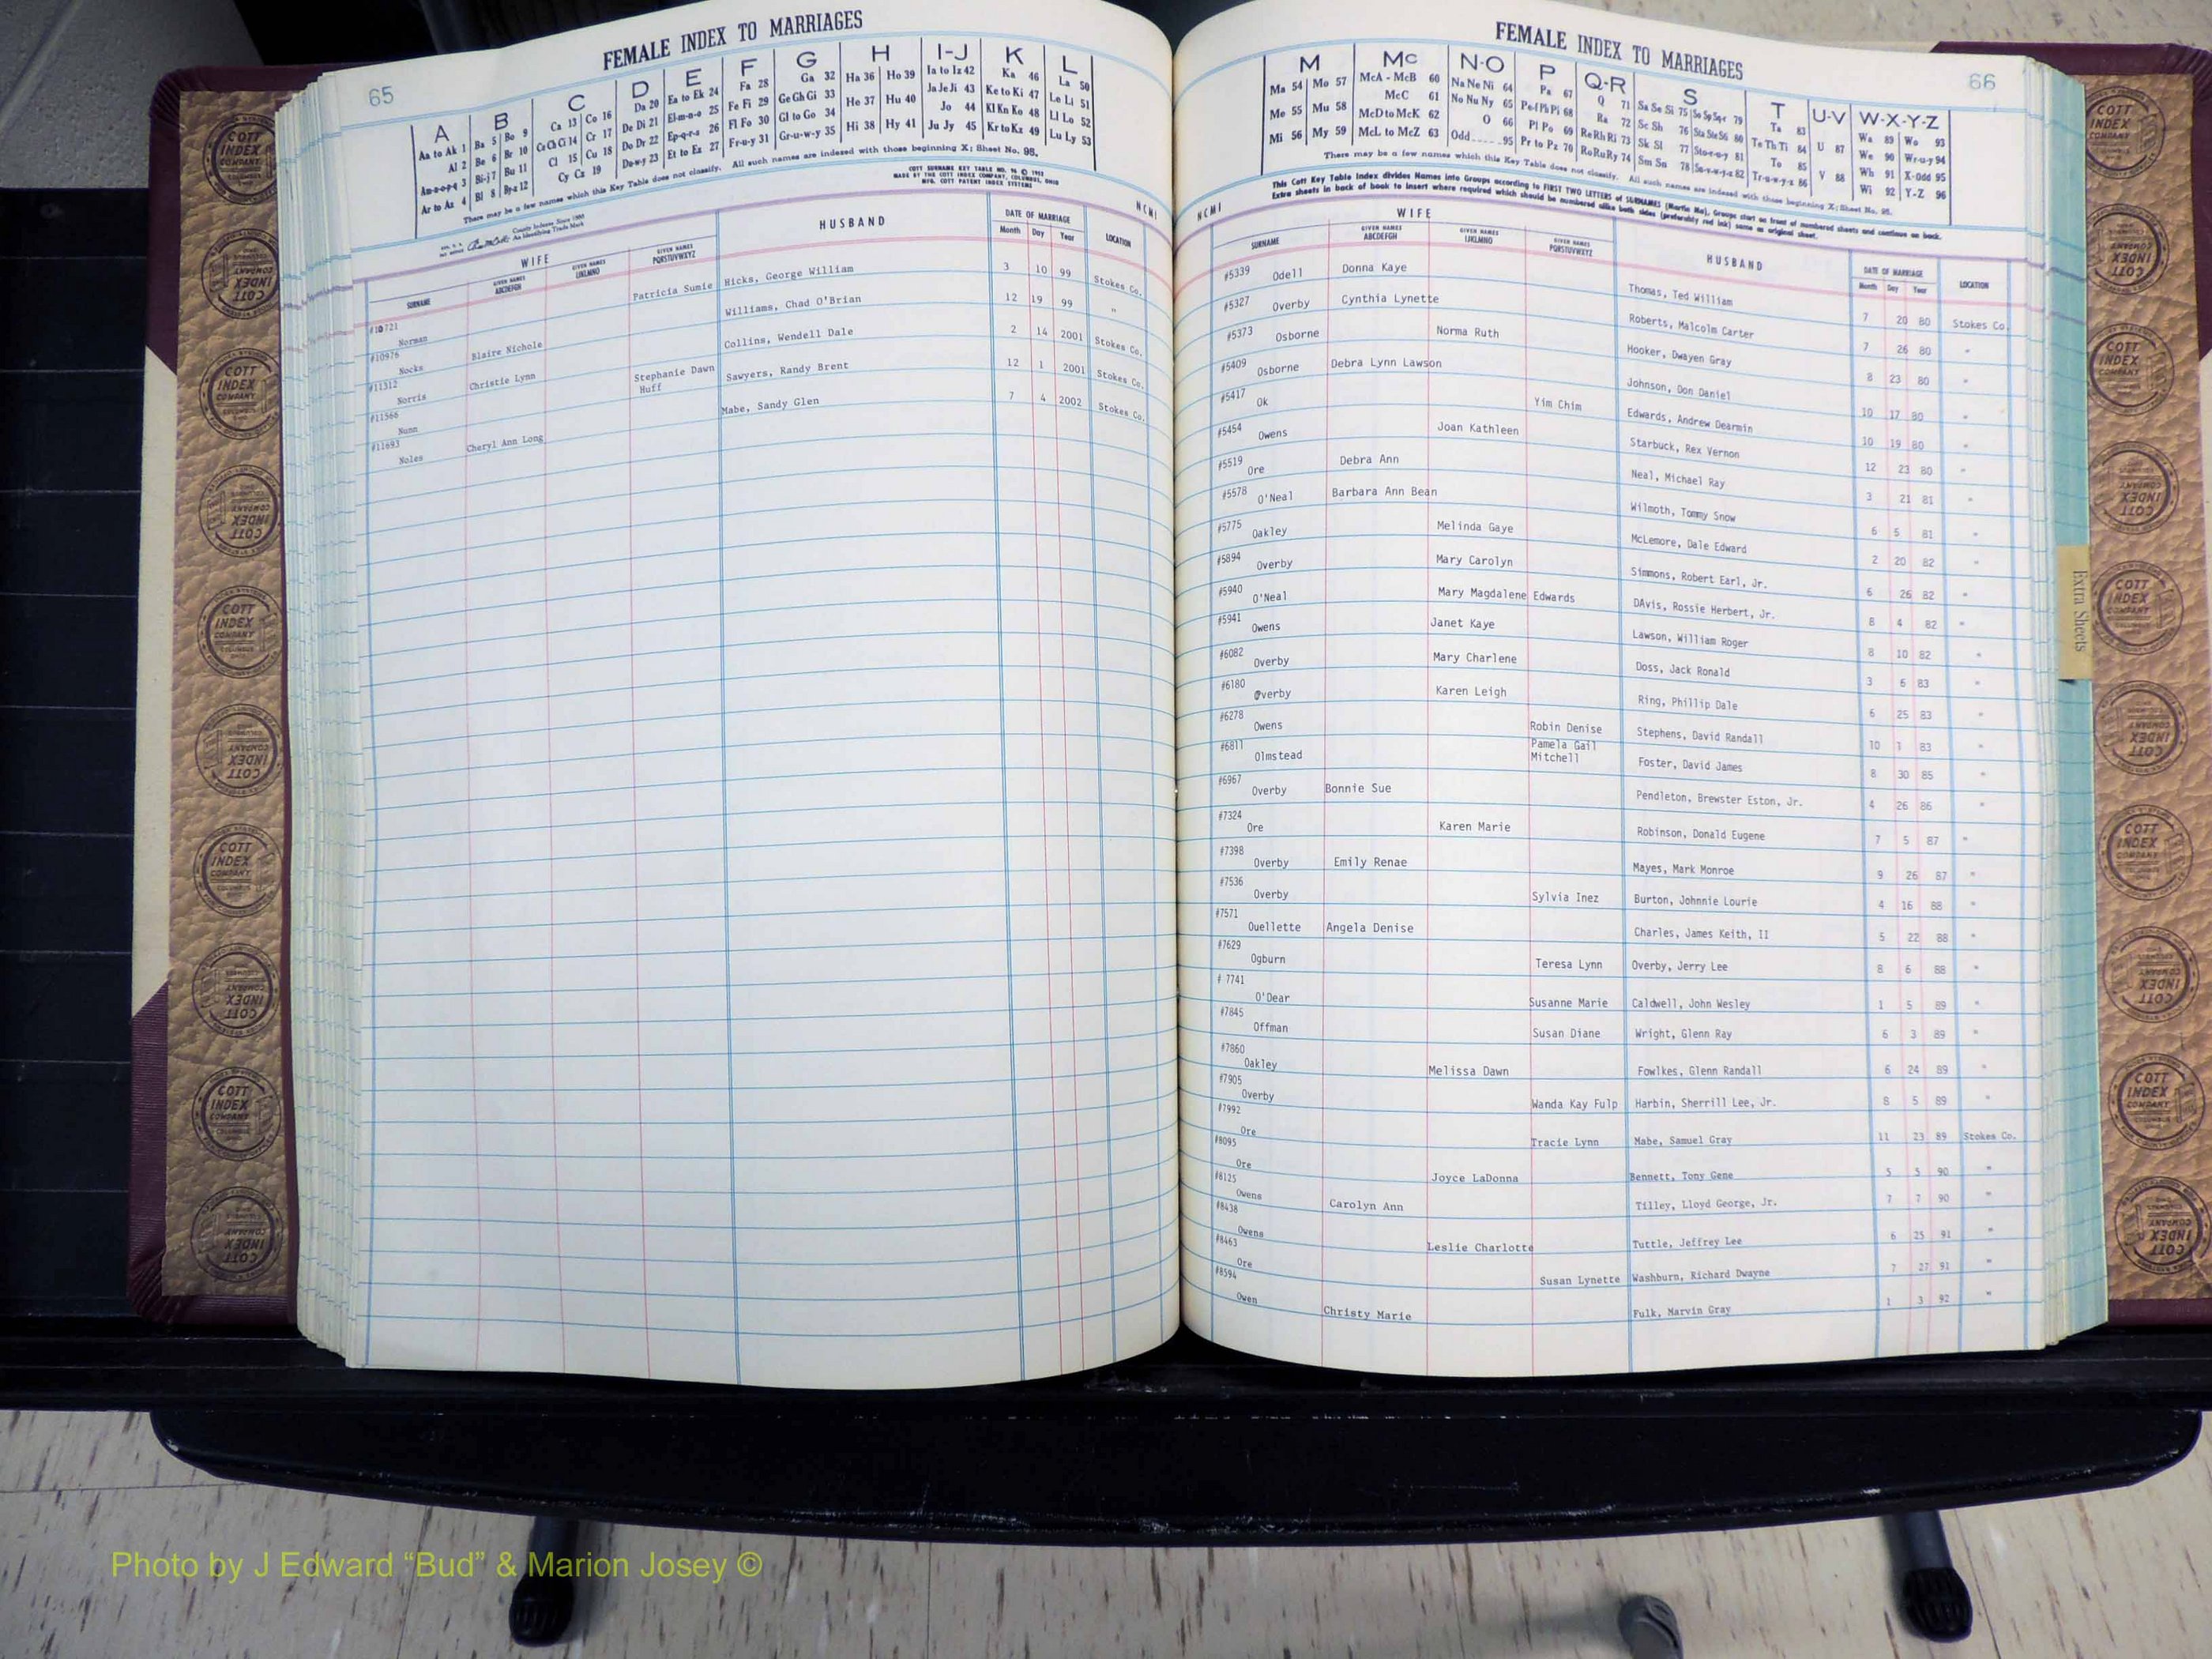 65
FEMALE INDEX TO MARRIAGES
A B C D E F G H I-J K L
Aa to Ak 1 Ba 5 Bo 9 Ca 13 Co 16 Da 20 Ea to Ek 24 Fa 28 Ga 32 Ha 36 Ho 39 Ia to Iz 42 Ka 46 La 50
Al 2 Be 6 Br 10 Ce Ch Ci 14 Cr 17 De Di 21 El-m-n-o 25 Fe Fi 29 Ge Gh Gi 33 He 37 Hu 40 Ja Je Ji 43 Ke to Ki 47 Le Li 51
Am-n-o-p-q 3 Bi-j 7 Bu 11 Cl 15 Cu 18 Do Dr 22 Ep-q-r-s 26 Fl Fo 30 Gl to Go 34 Hi 38 Hy 41 Jo 44 Kl Kn Ko 48 Ll Lo 52
Ar to Az 4 Bl 8 By-z 12 Cy Cz 19 Du-w-y 23 Et to Ez 27 Fr-u-y 31 Gr-u-w-y 35 Ju Jy 45 Kr to Kz 49 Lu Ly 53
There may be a few names which this Key Table does not classify. All such names are indexed with those beginning X; Sheet No. 95.
COTT SURNAME KEY TABLE NO.
MADE BY THE COTT INDEX COMPANY, COLUMBUS, OHIO
MFG. COTT PATENT INDEX SYSTEMS
County Indexes Since 1888
An Identifying Trade Mark
NCMI
WIFE HUSBAND DATE OF MARRIAGE LOCATION
SURNAME GIVEN NAMES ABCDEFGH GIVEN NAMES IJKLMNO GIVEN NAMES PQRSTUVWXYZ Month Day Year
#10721 Norman Patricia Sumie Hicks, George William 3 10 99 Stokes Co.
#10976 Nocks Blaire Nichole Williams, Chad O'Brian 12 19 99 "
#11312 Norris Christie Lynn Collins, Wendell Dale 2 14 2001 Stokes Co.
#11566 Nunn Stephanie Dawn Huff Sawyers, Randy Brent 12 1 2001 Stokes Co.
#11693 Noles Cheryl Ann Long Mabe, Sandy Glen 7 4 2002 Stokes Co.
FEMALE INDEX TO MARRIAGES
66
M Mc N-O P Q-R S T U-V W-X-Y-Z
Ma 54 Mo 57 McA - McB 60 Na Ne Ni 64 Pa 67 Q 71 Sa Se Si 75 So Sp Sq-r 79 Ta 83 U 87 Wa 89 Wo 93
Me 55 Mu 58 McC 61 No Nu Ny 65 Pe-f Ph Pi 68 Ra 72 Sc Sh 76 Sta Ste Sti 80 Te Th Ti 84 V 88 We 90 Wr-u-y 94
Mi 56 My 59 McD to McK 62 O 66 Pl Po 69 Re Rh Ri 73 Sk Sl 77 Sto-r-u-y 81 To 85 Wh 91 X-Odd 95
McL to McZ 63 Odd 95 Pr to Pz 70 Ro Ru Ry 74 Sm Sn 78 Su-v-w-y-z 82 Tr-u-w-y-z 86 Wi 92 Y-Z 96
There may be a few names which this Key Table does not classify. All such names are indexed with those beginning X; Sheet No. 95.
This Cott Key Table Index divides Names into Groups according to FIRST TWO LETTERS of SURNAMES (Martin Ma), Groups start on front of numbered sheets and continue on back.
Extra sheets in back of book to insert where required which should be numbered alike both sides (preferably red ink) same as original sheet.
NCMI
WIFE HUSBAND DATE OF MARRIAGE LOCATION
SURNAME GIVEN NAMES ABCDEFGH GIVEN NAMES IJKLMNO GIVEN NAMES PQRSTUVWXYZ Month Day Year
#5339 Odell Donna Kaye Thomas, Ted William 7 20 80 Stokes Co.
#5327 Overby Cynthia Lynette Roberts, Malcolm Carter 7 26 80 "
#5373 Osborne Norma Ruth Hooker, Dwayen Gray 8 23 80 "
#5409 Osborne Debra Lynn Lawson Johnson, Don Daniel 10 17 80 "
#5417 Ok Yim Chim Edwards, Andrew Dearmin 10 19 80 "
#5454 Owens Joan Kathleen Starbuck, Rex Vernon 12 23 80 "
#5519 Ore Debra Ann Neal, Michael Ray 3 21 81 "
#5578 O'Neal Barbara Ann Bean Wilmoth, Tommy Snow 6 5 81 "
#5775 Oakley Melinda Gaye McLemore, Dale Edward 2 20 82 "
#5894 Overby Mary Carolyn Simmons, Robert Earl, Jr. 6 26 82 "
#5940 O'Neal Mary Magdalene Edwards DAvis, Rossie Herbert, Jr. 8 4 82 "
#5941 Owens Janet Kaye Lawson, William Roger 8 10 82 "
#6082 Overby Mary Charlene Doss, Jack Ronald 3 6 83 "
#6180 Overby Karen Leigh Ring, Phillip Dale 6 25 83 "
#6278 Owens Robin Denise Stephens, David Randall 10 1 83 "
#6811 Olmstead Pamela Gail Mitchell Foster, David James 8 30 85 "
#6967 Overby Bonnie Sue Pendleton, Brewster Eston, Jr. 4 26 86 "
#7324 Ore Karen Marie Robinson, Donald Eugene 7 5 87 "
#7398 Overby Emily Renae Mayes, Mark Monroe 9 26 87 "
#7536 Overby Sylvia Inez Burton, Johnnie Lourie 4 16 88 "
#7571 Ouellette Angela Denise Charles, James Keith, II 5 22 88 "
#7629 Ogburn Teresa Lynn Overby, Jerry Lee 8 6 88 "
# 7741 O'Dear Susanne Marie Caldwell, John Wesley 1 5 89 "
#7845 Offman Susan Diane Wright, Glenn Ray 6 3 89 "
#7860 Oakley Melissa Dawn Fowlkes, Glenn Randall 6 24 89 "
#7905 Overby Wanda Kay Fulp Harbin, Sherrill Lee, Jr. 8 5 89 "
#7992 Ore Tracie Lynn Mabe, Samuel Gray 11 23 89 Stokes Co.
#8095 Ore Joyce LaDonna Bennett, Tony Gene 5 5 90 "
#8125 Owens Carolyn Ann Tilley, Lloyd George, Jr. 7 7 90 "
#8438 Owens Leslie Charlotte Tuttle, Jeffrey Lee 6 25 91 "
#8463 Ore Susan Lynette Washburn, Richard Dwayne 7 27 91 "
#8594 Owen Christy Marie Fulk, Marvin Gray 1 3 92 "
Extra Sheets
COTT INDEX COMPANY COLUMBUS OHIO
Photo by J Edward “Bud” & Marion Josey ©